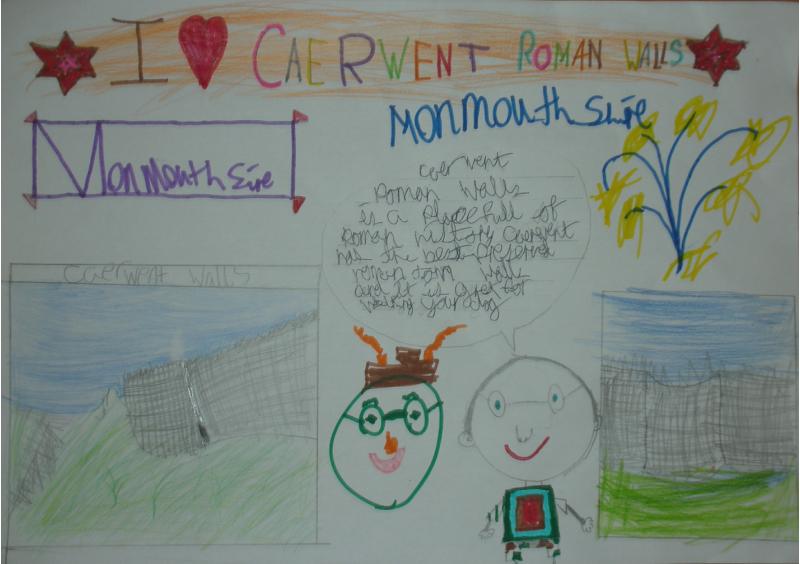 I ♥ CAERWENT ROMAN WALLS
MonMouthShire
MonMouth Sire
Caerwent
Roman Walls
is a place full of
Roman history Caerwent
has the best Preserved
roman town walls
and it is great for
walking your dog
Caerwent Walls